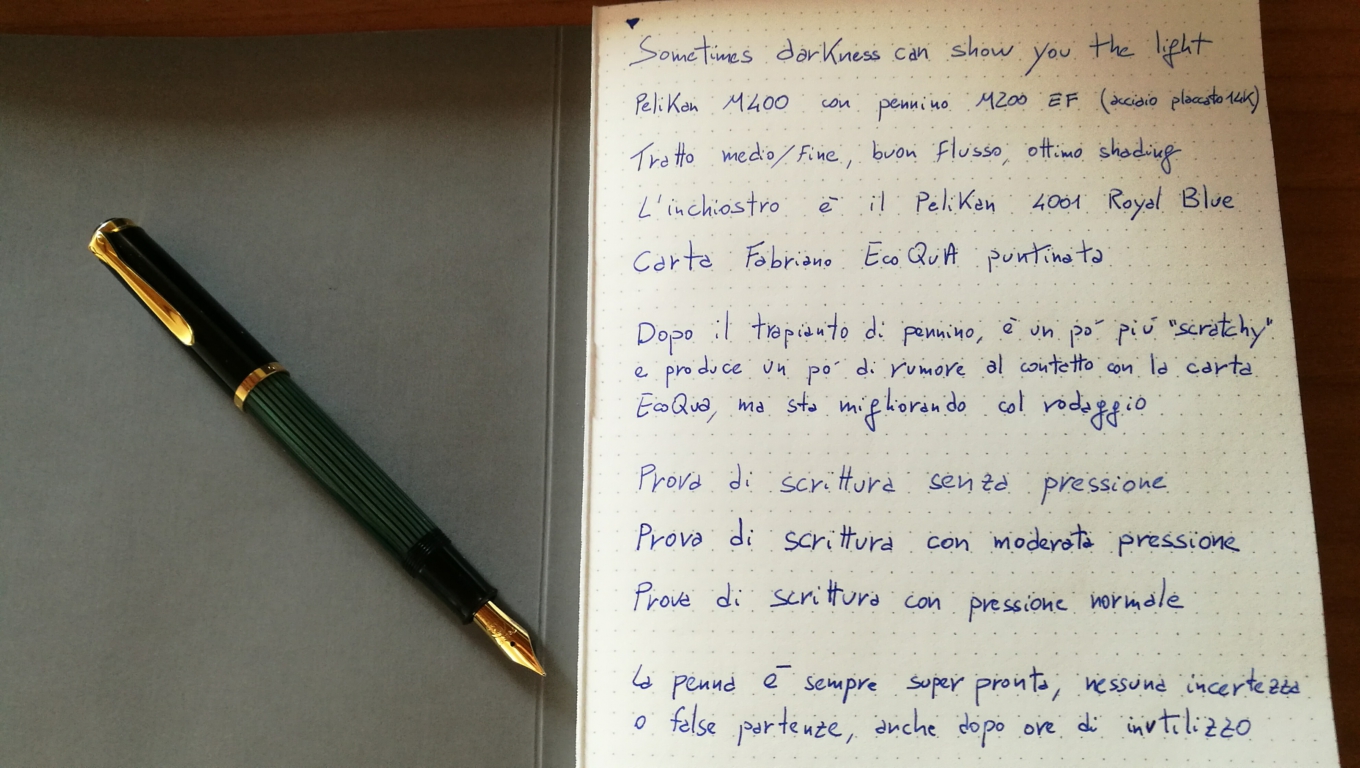 Sometimes darkness can show you the light
Pelikan M400 con pennino M200 EF (acciaio placcato 14K)
Tratto medio/fine, buon flusso, ottimo shading
L'inchiostro è il Pelikan 4001 Royal Blue
Carta Fabriano EcoQuA puntinata
Dopo il trapianto di pennino, è un po' più "scratchy"
e produce un po' di rumore al contatto con la carta
EcoQua, ma sta migliorando col rodaggio
Prova di scrittura senza pressione
Prova di scrittura con moderata pressione
Prova di scrittura con pressione normale
La penna è sempre super pronta, nessuna incertezza
o false partenze, anche dopo ore di inutilizzo